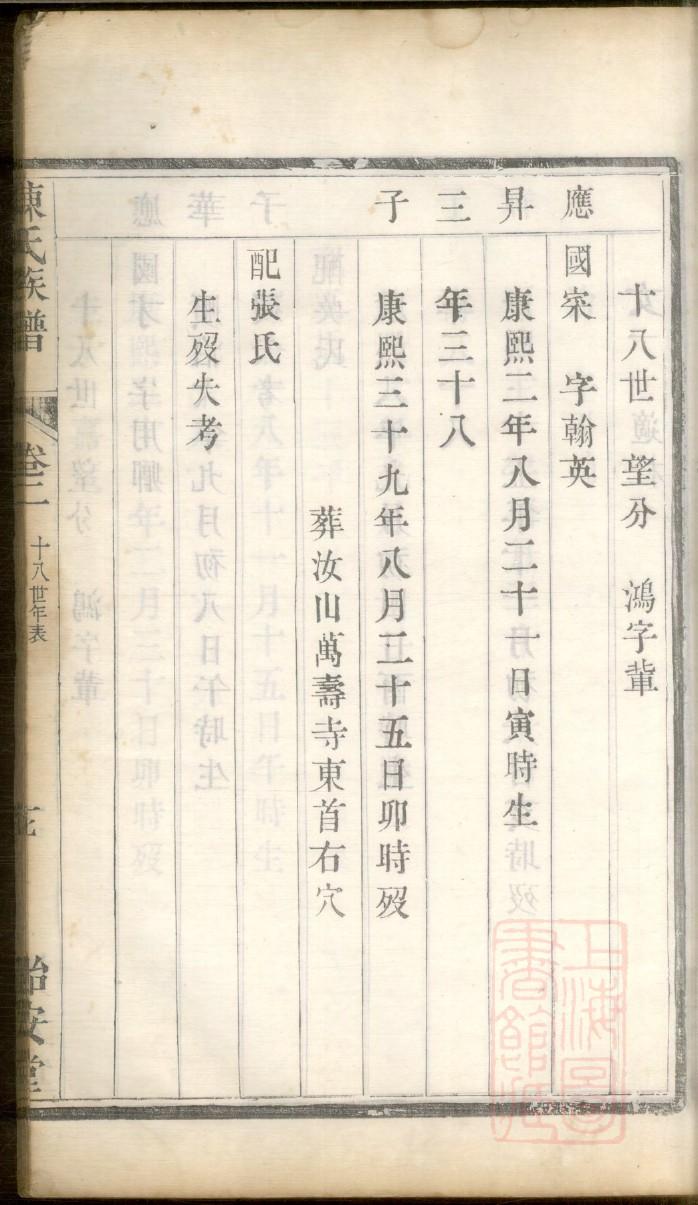 十八世 望分 鴻字輩
應昇三子
國寀 字翰英
康熙二年八月二十一日寅時生
年三十八
康熙三十九年八月二十五日卯時歿
葬汝山萬壽寺東首右穴
配張氏
生歿失考
陳氏族譜
卷二
十八世年表
怡安堂
上海圖書館藏